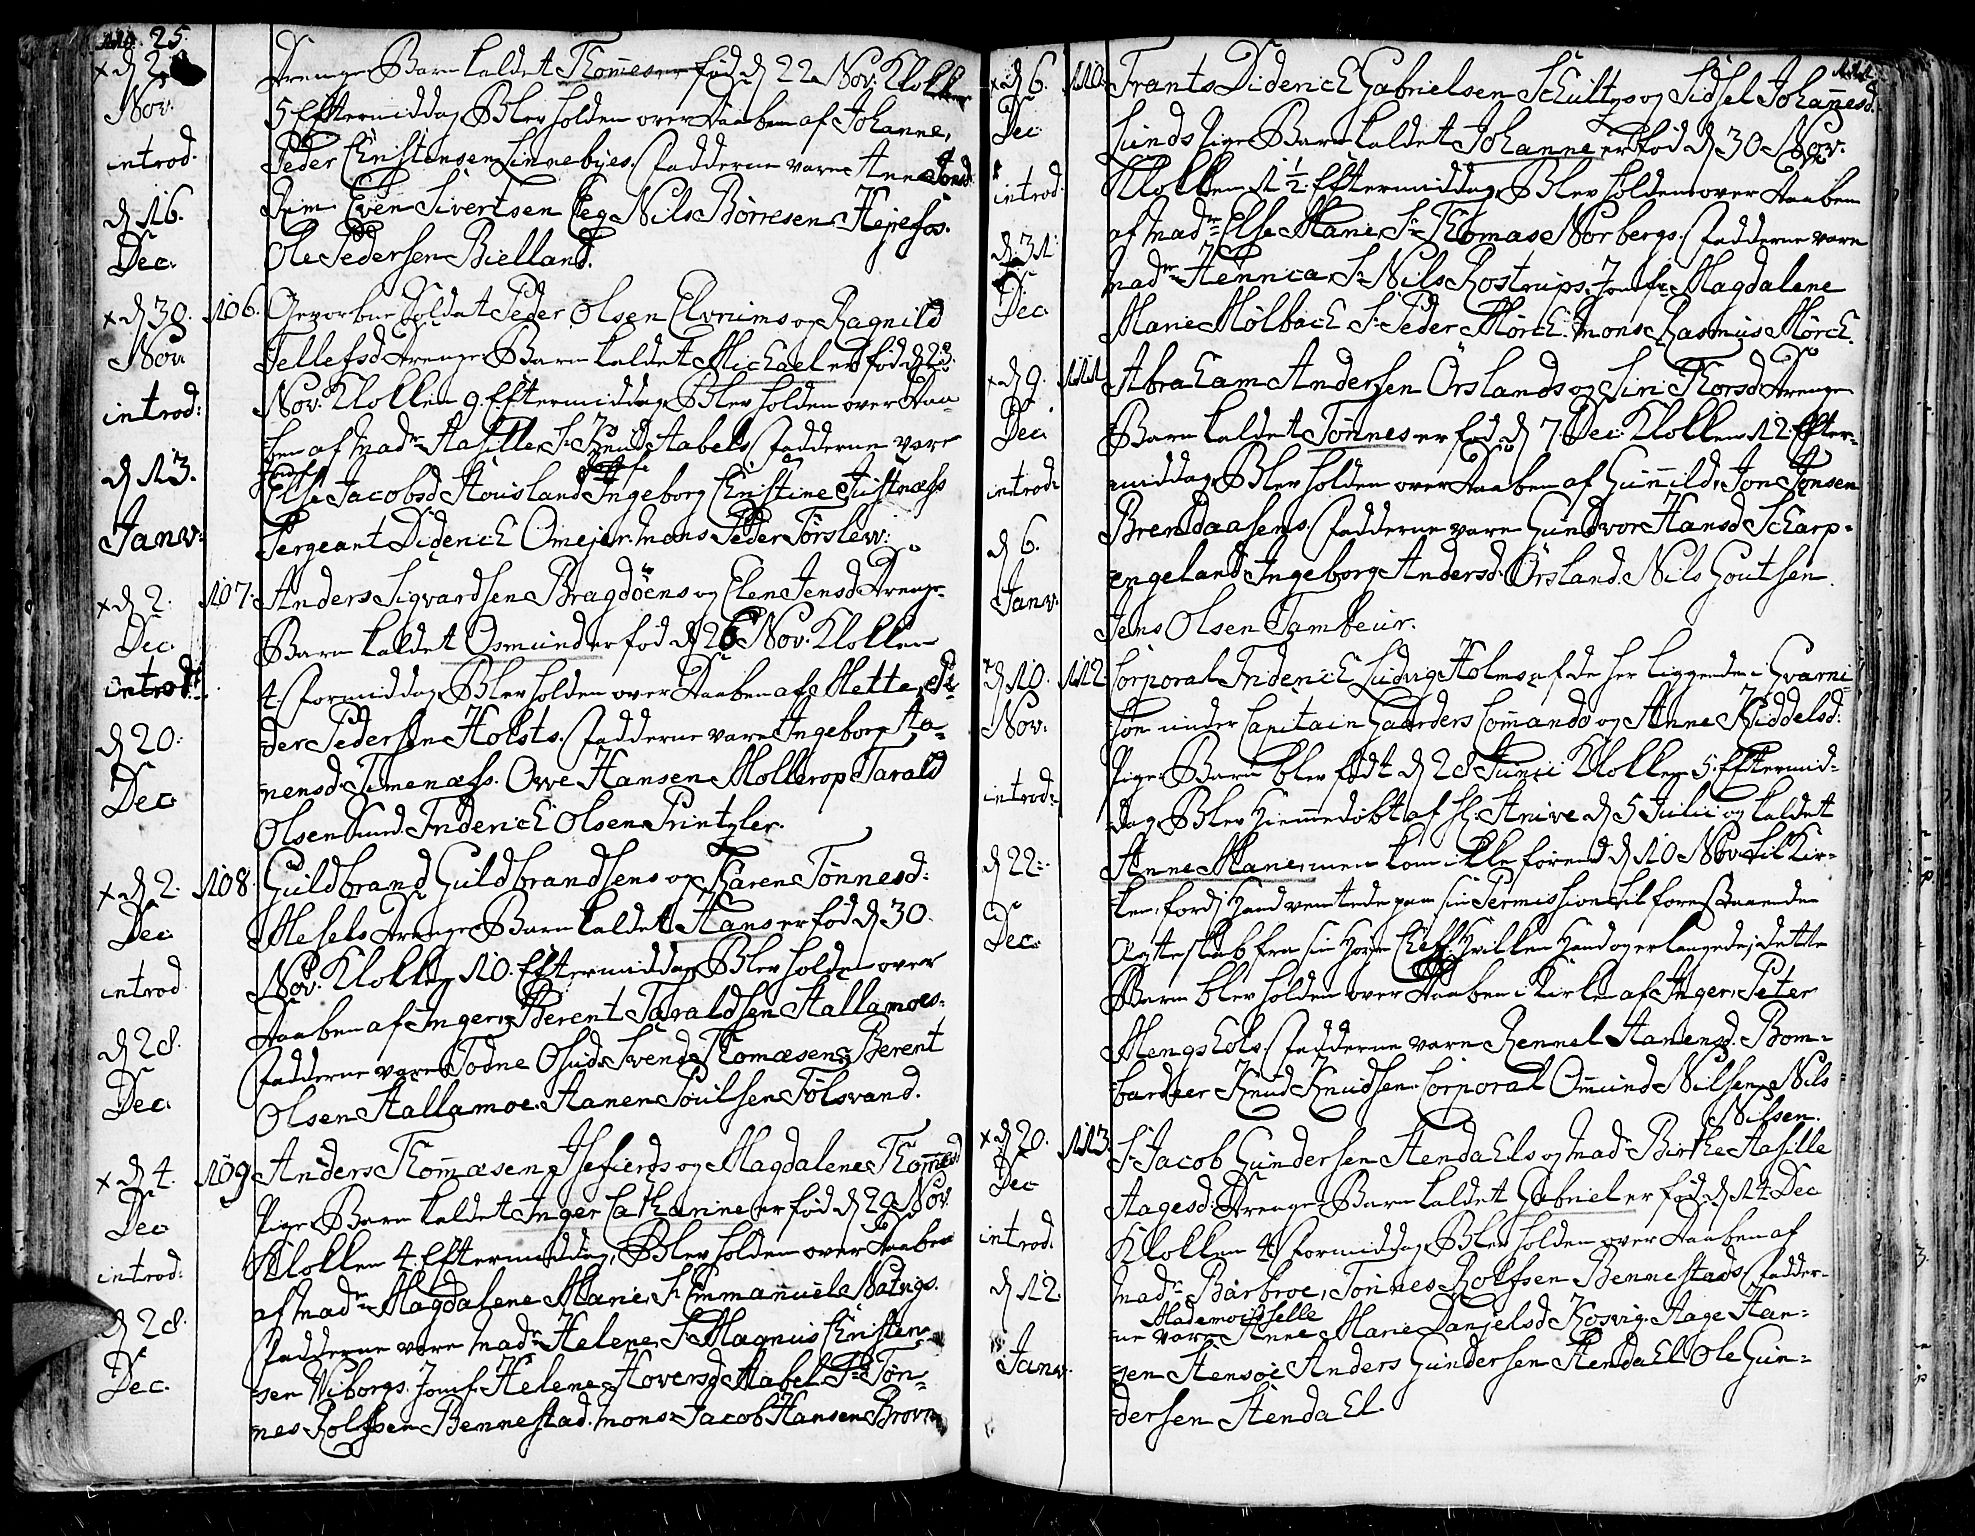 110. 25.
x d 2
Nov.
introd.
d 16.
Dec.
Drenge Barn kaldet Thomes er fød d 22 Nov. Klokken
5 Eftermiddag Blev holden over Daaben af Johanne,
Peder Christensen Linnebyes. Fadderne vare Anne
Even Sivertsen Eeg Nils Börresen Hejrefos.
Ole Pedersen Bielland.
x d 30. 106.
Nov.
introd:
d 13.
Janv:
Gevorbne Soldat Peder Olsen Elvrums og Ragnild
Tellefsd Drenge Barn kaldet Michael er fød d 23.
Nov. Klokken 9 Eftermiddag Blev holden over Daa-
ben af Madme Aasille, Sr Knud Aabels Fadderne vare
Else Jacobsd Stousland Ingeborg Christine Justnæss
Sergeant Diderich Omejer. Mons Peder Törslew.
x d 2. 107.
Dec.
introd:
d 20.
Dec.
Anders Sigvardsen Bragdöens og Elen Jensd Drenge
Barn kaldet Osmund er fød d 26 Nov. Klokken
4 Formiddag Blev holden over Daaben af Mette, Pe-
der Pedersen Holsts. Fadderne vare Ingeborg Aa-
nensd Timenæss. Owe Hansen Mollerop Tarald
Olsen Sund. Friderich Olsen Printzler.
x d 2. 108.
Dec.
introd
d 28.
Dec.
Guldbrand Guldbrandsens og Karen Tönnesd:
Mesels Drenge Barn kaldet Hans er fød d 30.
Nov. Klokken 10. Eftermiddag Blev holden over
Daaben af Inger, Berent Taraldsen Stallamoes.
Fadderne vare Todne Osuds Svend Thomæsen Berent
Olsen Stallamoe. Aanen Poulsen Tölsvand.
x d 4. 109
Dec
introd:
d 28.
Dec.
Anders Thommæsen Isefierds og Magdalene Thommesd
Pige Barn kaldet Inger Catharine er fød d 29 Nov.
Klokken 4. Eftermiddag, Blev holden over Daaben
af Madme Magdalene Marie, Sr Emmanuele Natvigs.
Fadderne vare Madme Helene, Sr Magnus Christen-
sen Viborgs. Jomf. Helene Hoversd Aabel Sr Tön-
nes Rolfsen Bennestad. Mons Jacob Hansen Brovn
111.
x d 6. 110.
Dec.
introd.
d 31.
Dec.
Frants Diderich Gabrielsen Schultzes og Sidsel Johannesd
Lunds Pige Barn kaldet Johanne er fød d 30 Nov.
Klokken 1 1/2 Eftermiddag Blev holden over Daaben
af Madme Else Marie, Sr Thomas Norbergs. Fadderne vare
Madme Hennica, Sr Nils Rostrups. Jomfr. Magdalene
Marie Mölbach Sr Peder Mörch. Mons Rasmus Mörch.
x d 9. 111.
Dec.
introd:
d 6.
Janv.
Abraham Andersen Örslands og Siri Thorsd Drenge
Barn kaldet Tönnes er fød d 7 Dec. Klokken 12 Efter-
middag Blev holden over Daaben af Gunnild, Jon Jonsen
Brendaasens. Fadderne vare Gundvor Hansd Scharp-
engeland Ingeborg Andersd. Örsland. Nils Goutsen.
Jens Olsen Tambeur.
d 10. 112.
Nov.
introd:
d 22.
Dec.
Corporal Friderich Ludvig Holms af de her liggende i Gvarni-
son under Capitain Gaarders Commando og Anne Kiddelsd:
Pige Barn blev født d 28 Junii Klokken 5. Eftermid-
dag Blev Hiemmedöbt af d 5 Julii og kaldet
Anne Marie, men kom ikke förend d 10 Nov. til Kir-
ken, fordj Hand ventede paa sin Permission til forestaaende
Egteskab fra sin Herre Chef. Hvilken Hand og erlangede; dette
Barn blev holden over Daaben i Kirken af Inger, Peter
Mengshols. Fadderne vare Rennel Aanensd. Bom-
bardeer Knud Knudsen. Corporal Omund Nilsen. Nils
Nilsen.
x d 20. 113.
Dec
introd.
d 12.
Janv.
Sr Jacob Gundersen Stendahls og Mad Birthe Aasille
Aagesd. Drenge Barn kaldet Gabriel er fød d 14 Dec
Klokken 4 Formiddag Blev holden over Daaben af
Madme Barbroe, Tönnes Rolfsen Bennestads. Fadder-
ne vare Mademoisselle Anne Marie Danjelsd Kosvig. Aage Han-
sen Stensöe Anders Gundersen Stendahl Ole Gun-
dersen Stendahl.